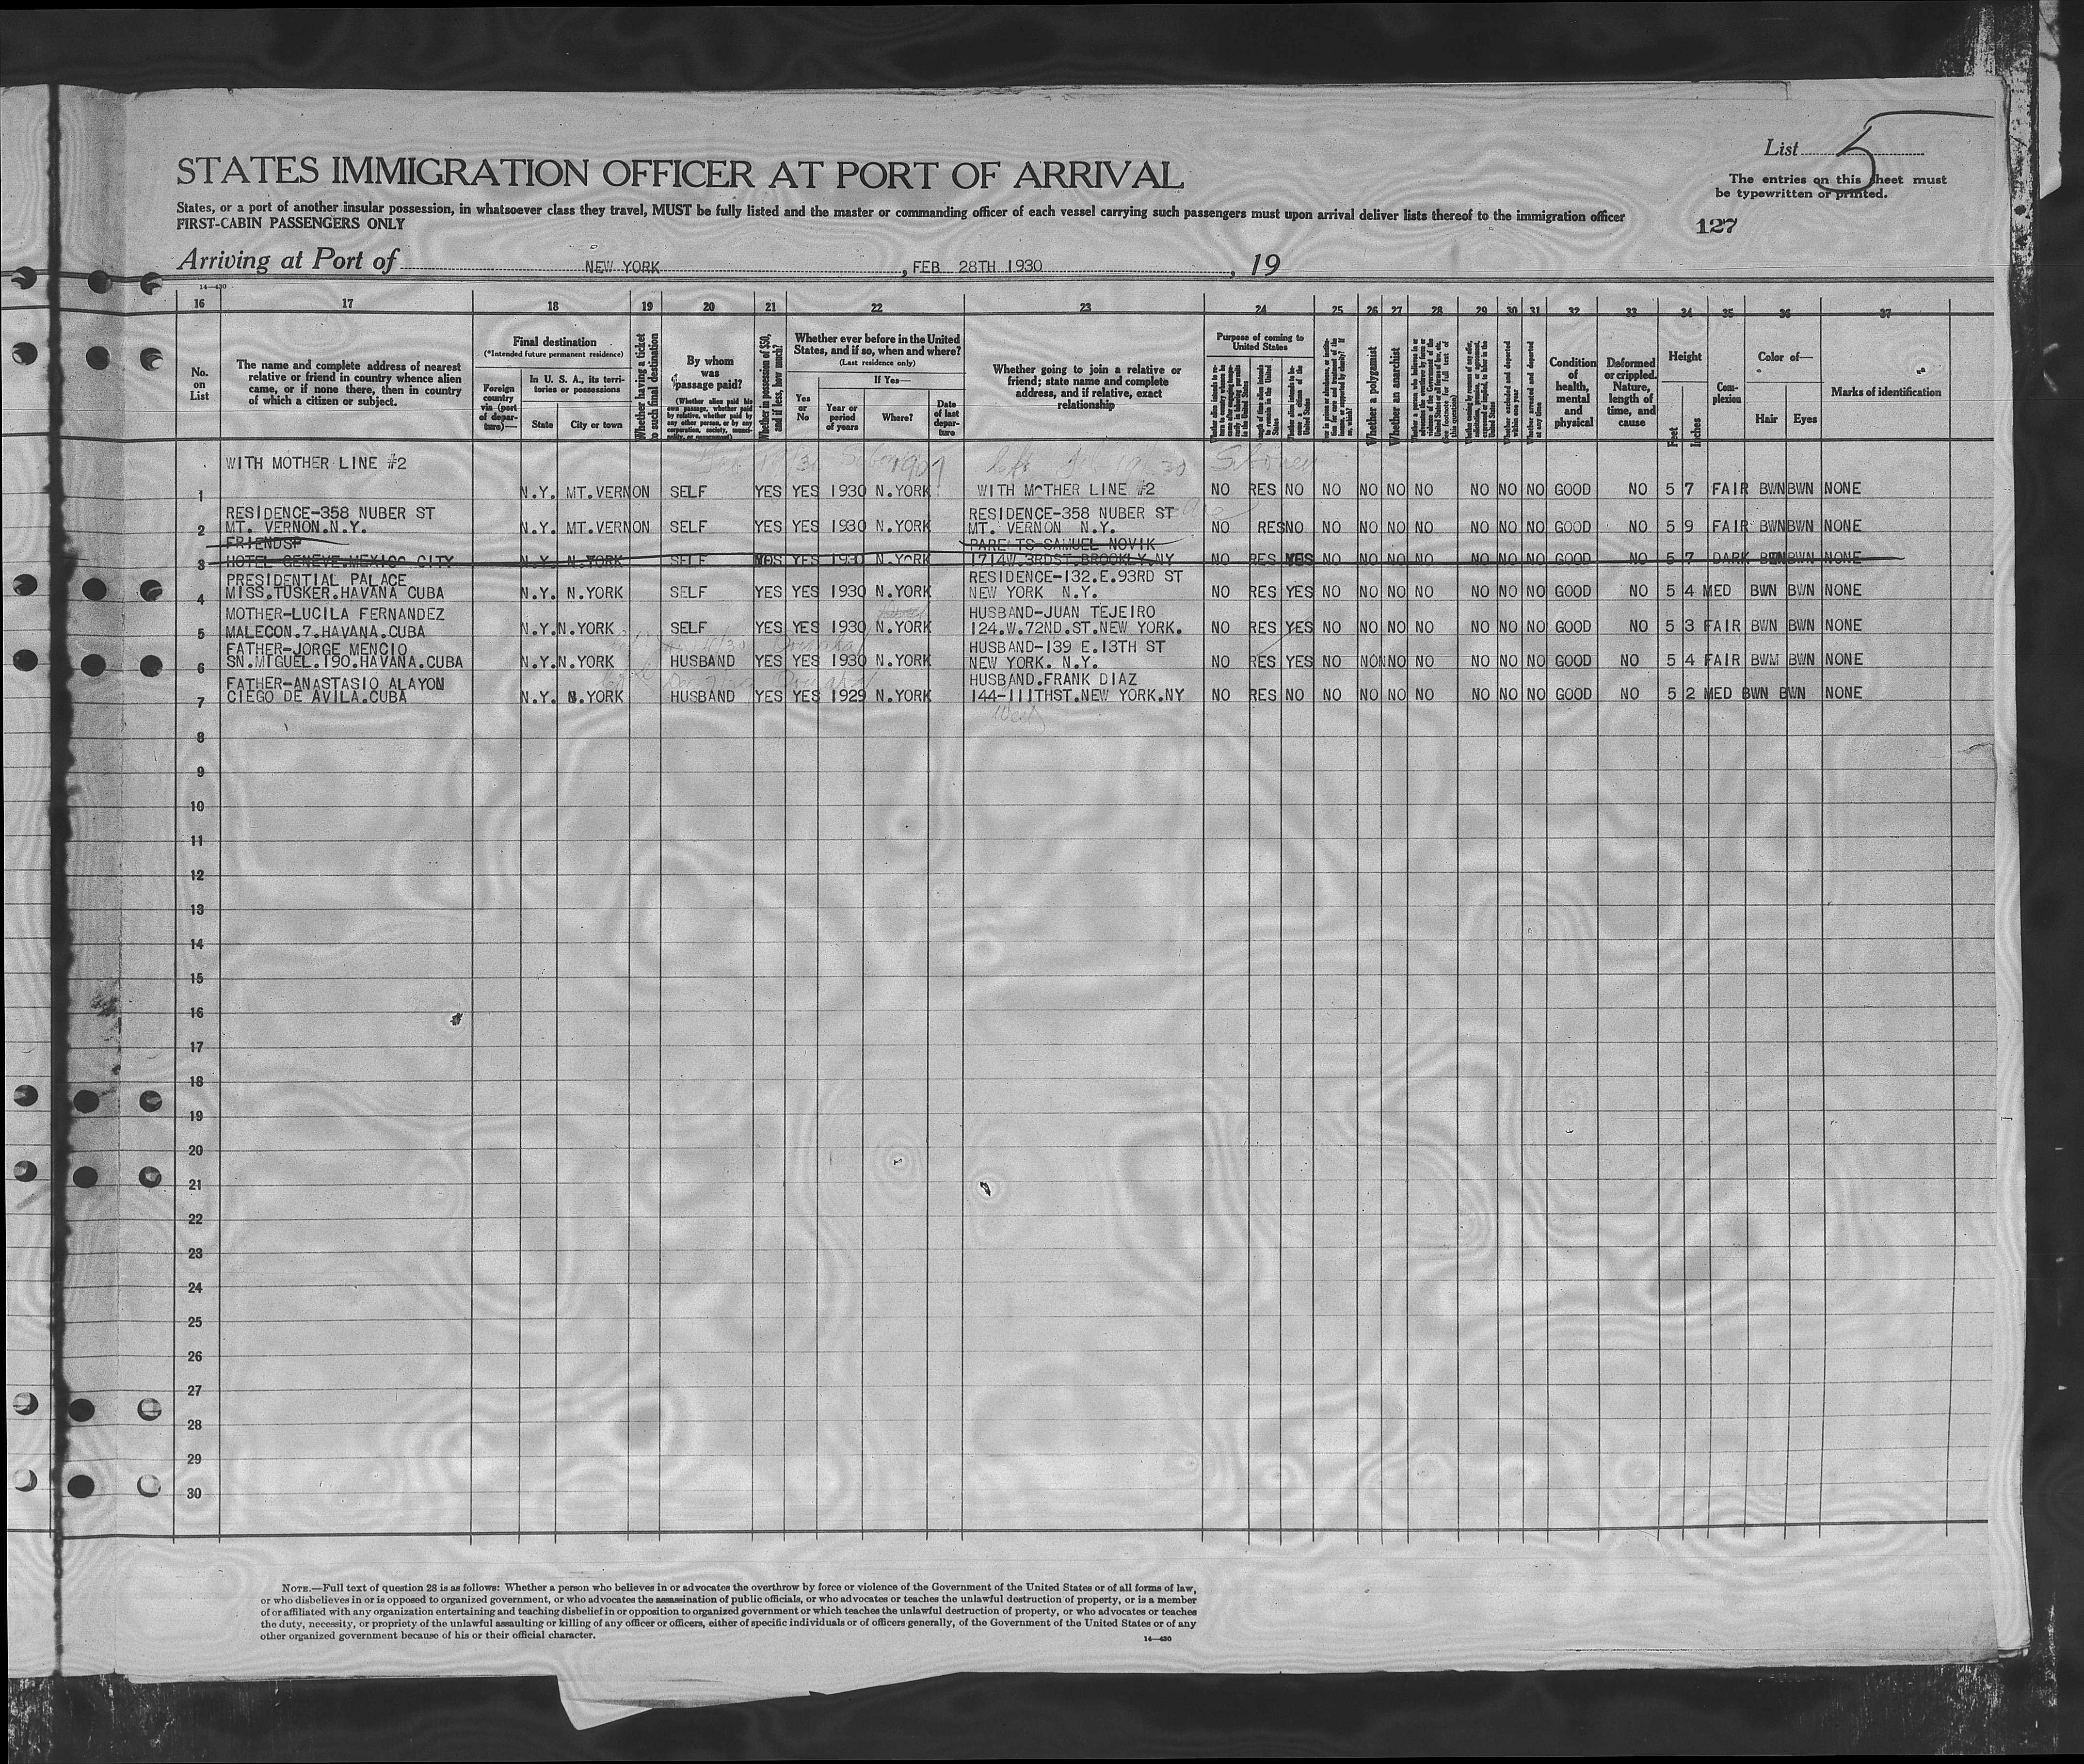 List 5
The entries on this sheet must
be typewritten or printed.
STATES IMMIGRATION OFFICER AT PORT OF ARRIVAL
States, or a port of another insular possession, in whatsoever class they travel, MUST be fully listed and the master or commanding officer of each vessel carrying such passengers must upon arrival deliver lists thereof to the immigration officer
FIRST-CABIN PASSENGERS ONLY
127
Arriving at Port of NEW YORK, FEB 28TH 1930, 19
14—430
16 17 18 19 20 21 22 23 24 25 26 27 28 29 30 31 32 33 34 35 36 37
No.
on
List
The name and complete address of nearest
relative or friend in country whence alien
came, or if none there, then in country
of which a citizen or subject.
Final destination
(*Intended future permanent residence)
Foreign
country
via (port
of depar-
ture)—
In U. S. A., its terri-
tories or possessions
State City or town
Whether having a ticket
to such final destination
By whom
was
passage paid?
(Whether alien paid his
own passage, whether paid
by relative, whether paid by
any other person, or by any
corporation, society, munici-
pality, or government)
Whether in possession of $50,
and if less, how much?
Whether ever before in the United
States, and if so, when and where?
(Last residence only)
Yes
or
No
If Yes—
Year or
period
of years
Where?
Date
of last
depar-
ture
Whether going to join a relative or
friend; state name and complete
address, and if relative, exact
relationship
Purpose of coming to
United States
Whether a polygamist
Whether an anarchist
Condition
of
health,
mental
and
physical
Deformed
or crippled.
Nature,
length of
time, and
cause
Height
Feet Inches
Com-
plexion
Color of—
Hair Eyes
Marks of identification
WITH MOTHER LINE #2
1 N.Y. MT.VERNON SELF YES YES 1930 N.YORK WITH MOTHER LINE #2 NO RES NO NO NO NO NO NO NO NO GOOD NO 5 7 FAIR BWN BWN NONE
RESIDENCE-358 NUBER ST RESIDENCE-358 NUBER ST
2 MT. VERNON.N.Y. N.Y. MT.VERNON SELF YES YES 1930 N.YORK MT. VERNON N.Y. NO RES NO NO NO NO NO NO NO NO GOOD NO 5 9 FAIR BWN BWN NONE
FRIENDSP PARENTS-SAMUEL NOVIK
3 HOTEL GENEVE.MEXICO CITY N.Y. N.YORK SELF YES YES 1930 N.YORK 1714W.3RDST.BROOKLY.NY NO RES YES NO NO NO NO NO NO NO GOOD NO 5 7 DARK BWN BWN NONE
PRESIDENTIAL PALACE RESIDENCE-132.E.93RD ST
4 MISS.TUSKER.HAVANA CUBA N.Y. N.YORK SELF YES YES 1930 N.YORK NEW YORK N.Y. NO RES YES NO NO NO NO NO NO NO GOOD NO 5 4 MED BWN BWN NONE
MOTHER-LUCILA FERNANDEZ HUSBAND-JUAN TEJEIRO
5 MALECON.7.HAVANA.CUBA N.Y. N.YORK SELF YES YES 1930 N.YORK 124.W.72ND.ST.NEW YORK. NO RES YES NO NO NO NO NO NO NO GOOD NO 5 3 FAIR BWN BWN NONE
FATHER-JORGE MENCIO HUSBAND-139 E.13TH ST
6 SN.MIGUEL.190.HAVANA.CUBA N.Y. N.YORK HUSBAND YES YES 1930 N.YORK NEW YORK. N.Y. NO RES YES NO NO NO NO NO NO NO GOOD NO 5 4 FAIR BWM BWN NONE
FATHER-ANASTASIO ALAYON HUSBAND.FRANK DIAZ
7 CIEGO DE AVILA.CUBA N.Y. N.YORK HUSBAND YES YES 1929 N.YORK 144-111THST.NEW YORK.NY NO RES NO NO NO NO NO NO NO NO GOOD NO 5 2 MED BWN BWN NONE
West
8
9
10
11
12
13
14
15
16
17
18
19
20
21
22
23
24
25
26
27
28
29
30
NOTE.—Full text of question 28 is as follows: Whether a person who believes in or advocates the overthrow by force or violence of the Government of the United States or of all forms of law,
or who disbelieves in or is opposed to organized government, or who advocates the assassination of public officials, or who advocates or teaches the unlawful destruction of property, or is a member
of or affiliated with any organization entertaining and teaching disbelief in or opposition to organized government or which teaches the unlawful destruction of property, or who advocates or teaches
the duty, necessity, or propriety of the unlawful assaulting or killing of any officer or officers, either of specific individuals or of officers generally, of the Government of the United States or of any
other organized government because of his or their official character.
14—430